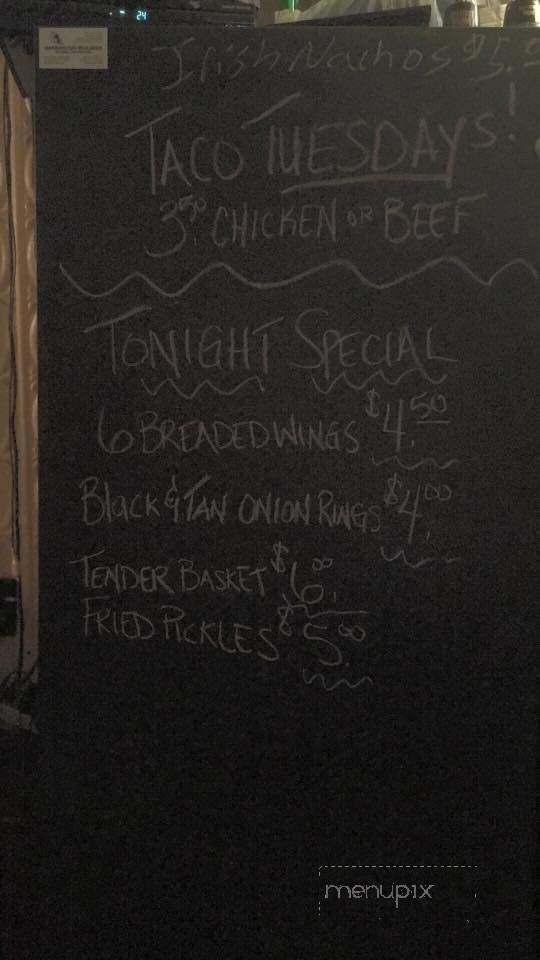 24
Irish Nachos $5.
TACO TUESDAYS!
3.50 CHICKEN OR BEEF
TONIGHT SPECIAL
6 BREADED WINGS $4.50
Black & TAN ONION RINGS $4.00
TENDER BASKET $6.00
FRIED PICKLES $5.00
menupix